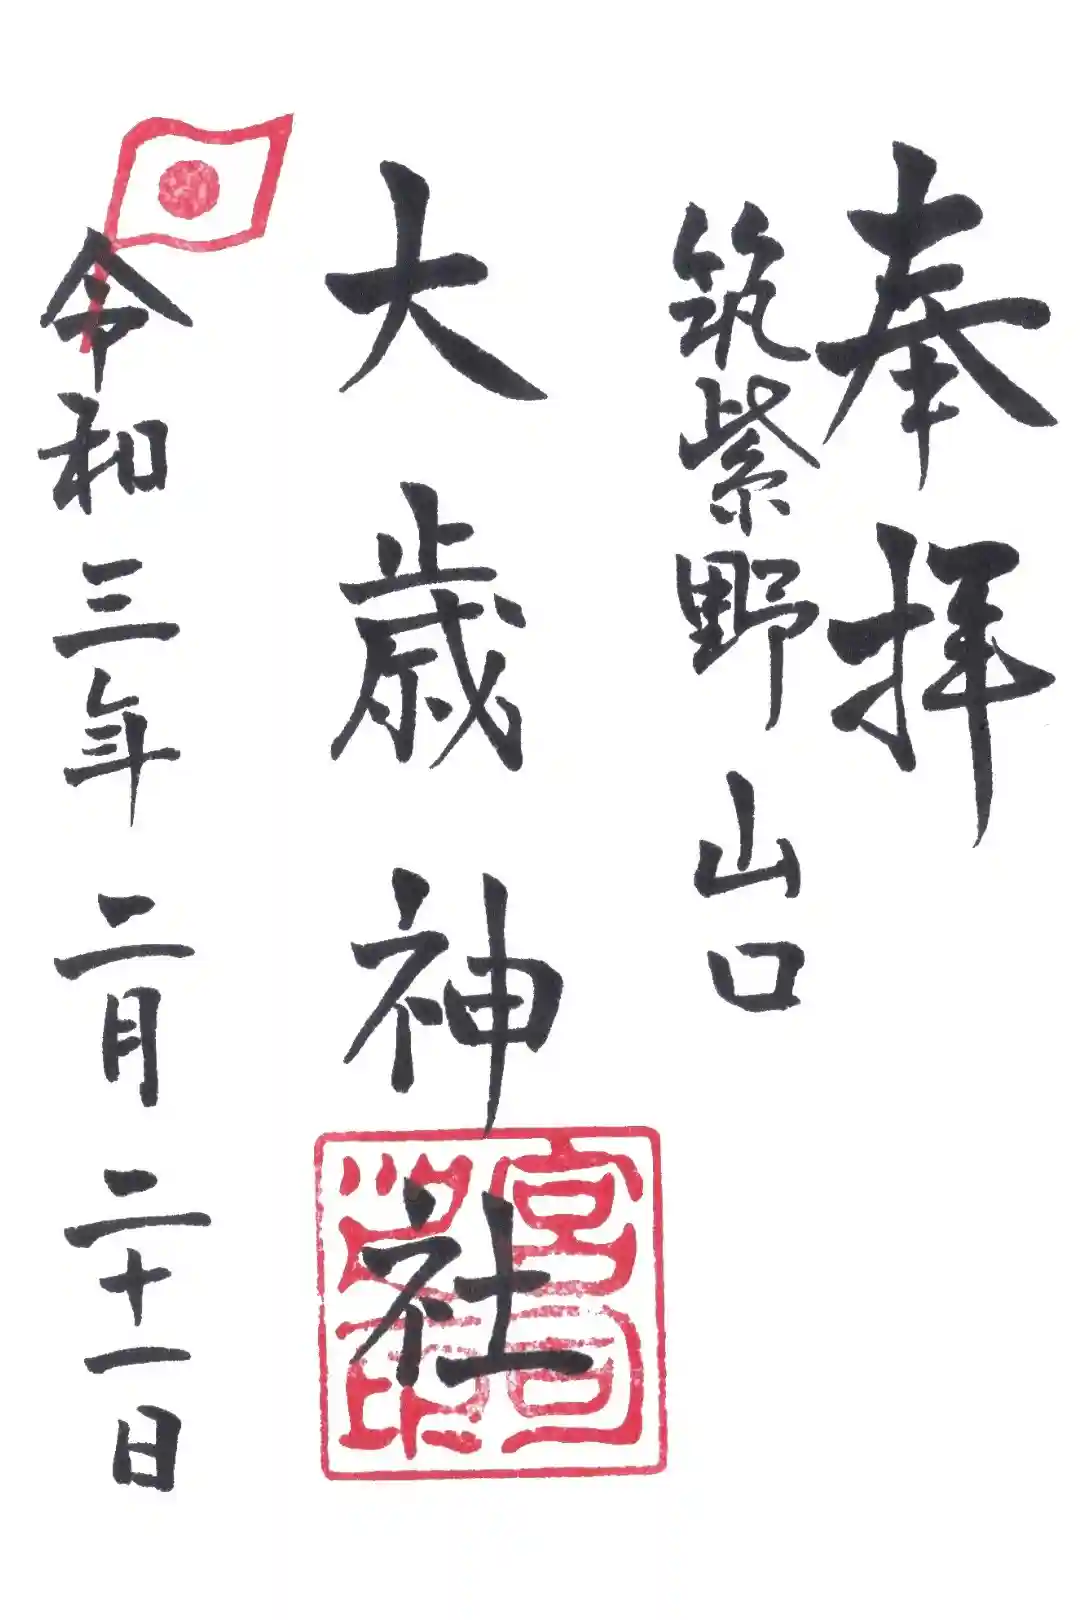 奉拝
筑紫野山口
大歳神社
宮司之印
令和三年二月二十一日